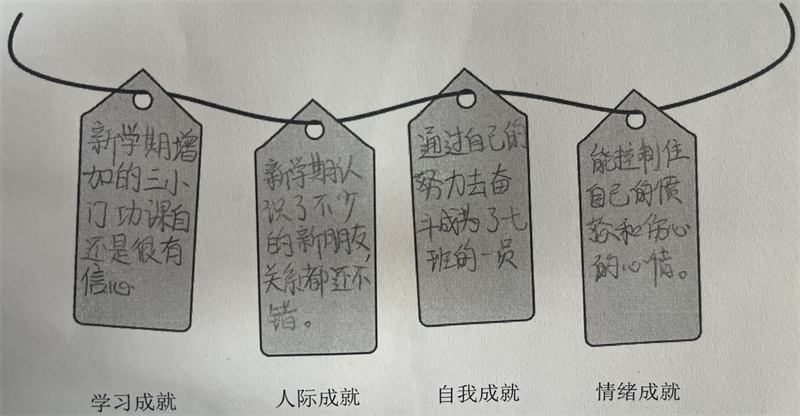 新学期增
加的三小
门功课自
还是很有
信心
学习成就
新学期认
识了不少
的新朋友,
关系都还不
错。
人际成就
通过自己的
努力去奋
斗成为了七
班的一员
自我成就
能控制住
自己的愤
怒和伤心
的心情。
情绪成就